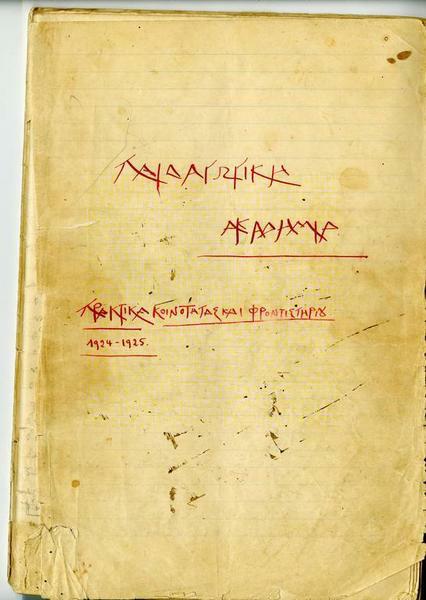 Παιδαγωγική
Ακαδημία
Πρακτικά Κοινότητας και Φροντιστηρίου
1924-1925.